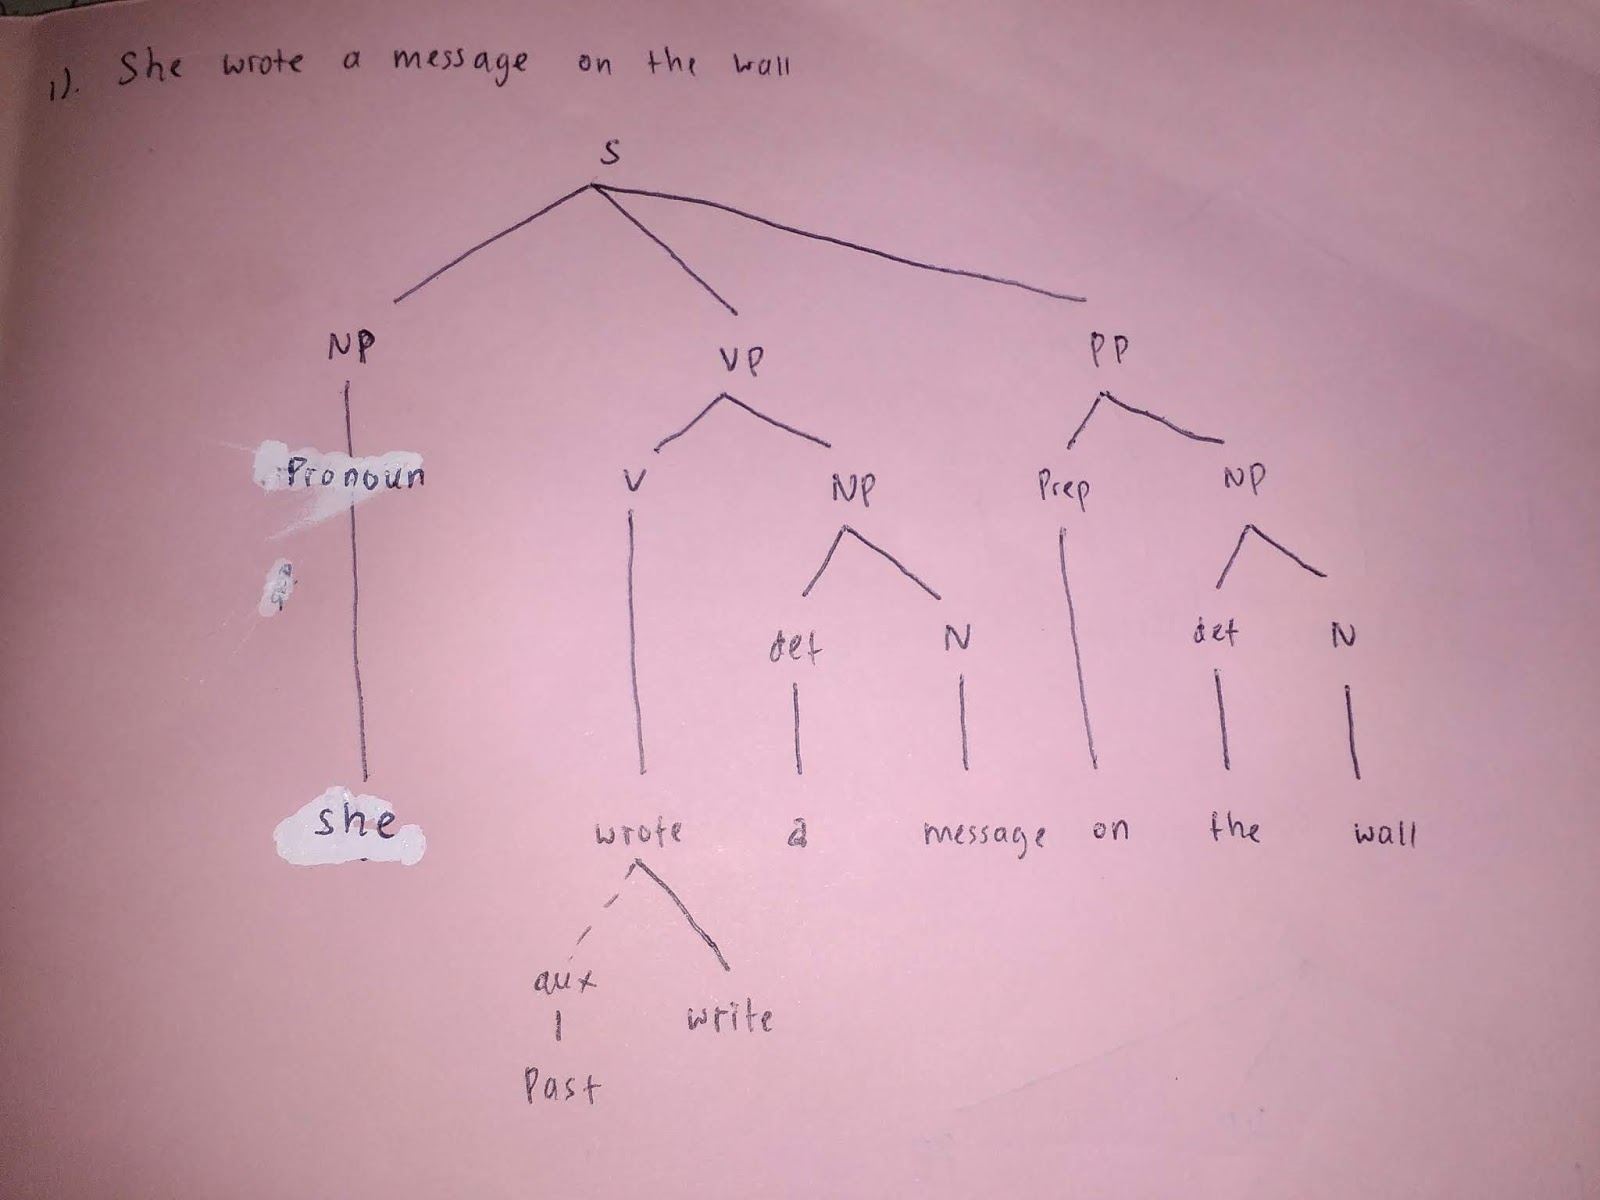 1). She wrote a message on the wall
S
NP VP PP
Pronoun V NP Prep NP
det N det N
she wrote a message on the wall
aux write
Past